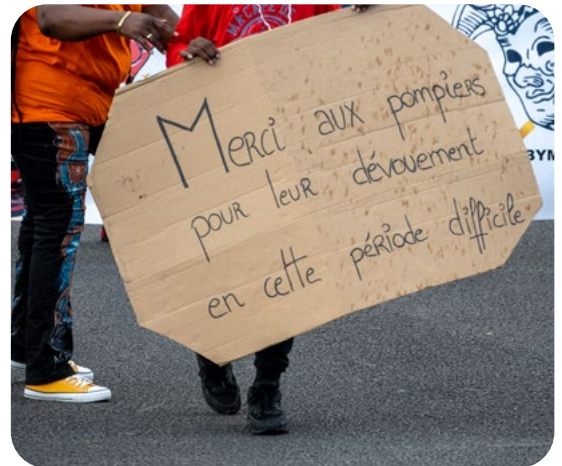 Merci aux pompiers
pour leur dévouement
en cette période difficile